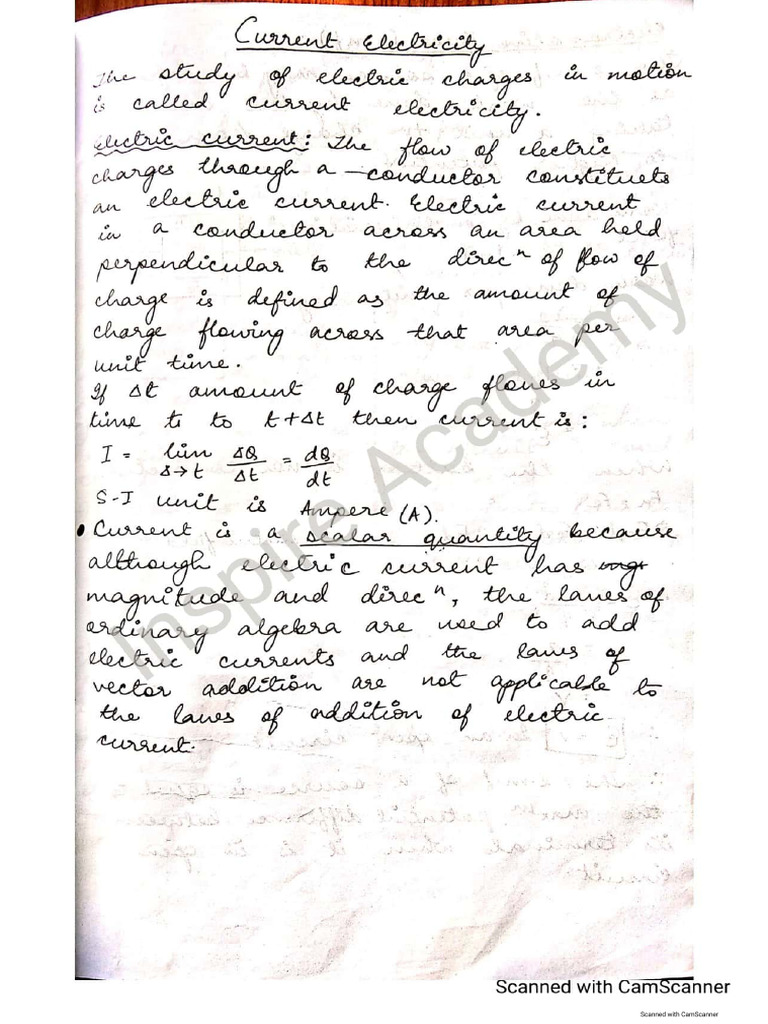 Current Electricity
The study of electric charges in motion
is called current electricity.
Electric current: The flow of electric
charges through a conductor constituets
an electric current. Electric current
in a conductor across an area held
perpendicular to the direcⁿ of flow of
charge is defined as the amount of
charge flowing across that area per
unit time.
If Δt amount of charge flowes in
time t to t+Δt then current is:
I = lim ΔQ/Δt = dQ/dt
Δ→t
S-I unit is Ampere (A).
• Current is a scalar quantity because
although electric current has
magnitude and direcⁿ, the laws of
ordinary algebra are used to add
electric currents and the laws of
vector addition are not applicable to
the laws of addition of electric
current.
Inspire Academy
Scanned with CamScanner
Scanned with CamScanner